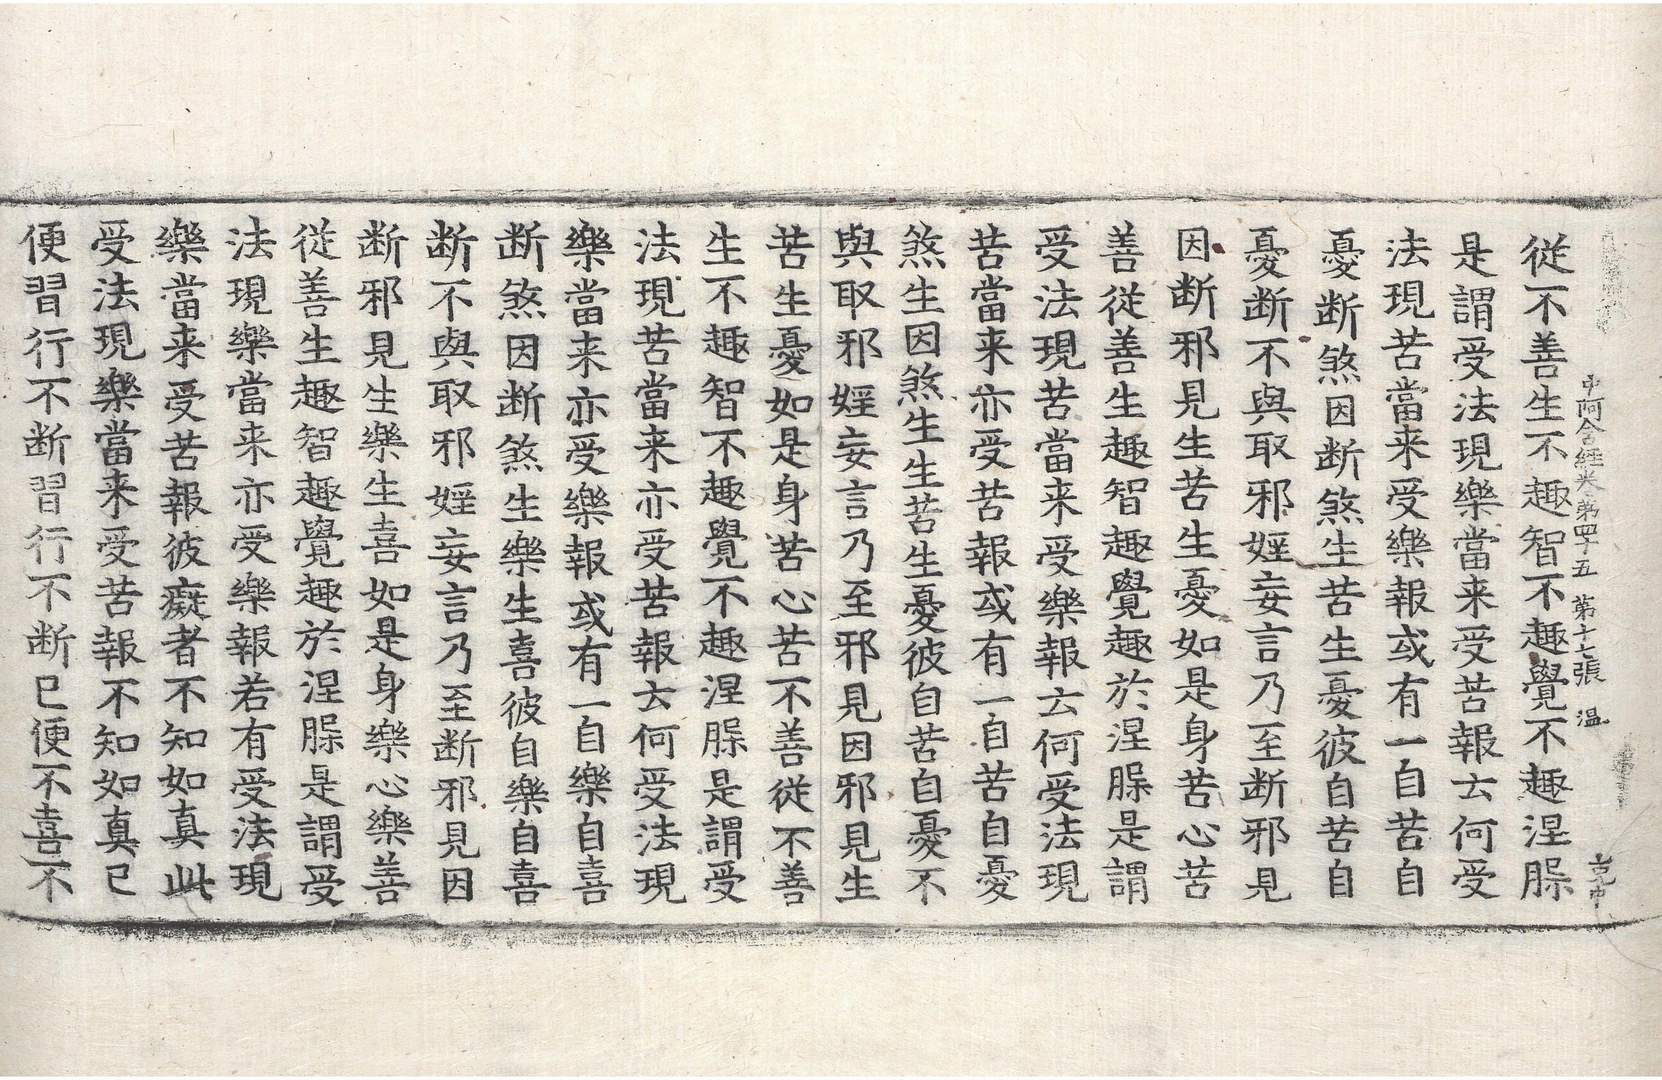 中阿含經卷第四十五 第十七張 温
從不善生不趣智不趣覺不趣涅槃
是謂受法現樂當来受苦報云何受
法現苦當来受樂報或有一自苦自
憂断煞因断煞生苦生憂彼自苦自
憂断不與取邪婬妄言乃至断邪見
因断邪見生苦生憂如是身苦心苦
善從善生趣智趣覺趣於涅槃是謂
受法現苦當来受樂報云何受法現
苦當来亦受苦報或有一自苦自憂
煞生因煞生生苦生憂彼自苦自憂不
與取邪婬妄言乃至邪見因邪見生
苦生憂如是身苦心苦不善從不善
生不趣智不趣覺不趣涅槃是謂受
法現苦當来亦受苦報云何受法現
樂當来亦受樂報或有一自樂自喜
断煞因断煞生樂生喜彼自樂自喜
断不與取邪婬妄言乃至断邪見因
断邪見生樂生喜如是身樂心樂善
從善生趣智趣覺趣於涅槃是謂受
法現樂當来亦受樂報若有受法現
樂當来受苦報彼癡者不知如真此
受法現樂當来受苦報不知如真已
便習行不断習行不断已便不喜不